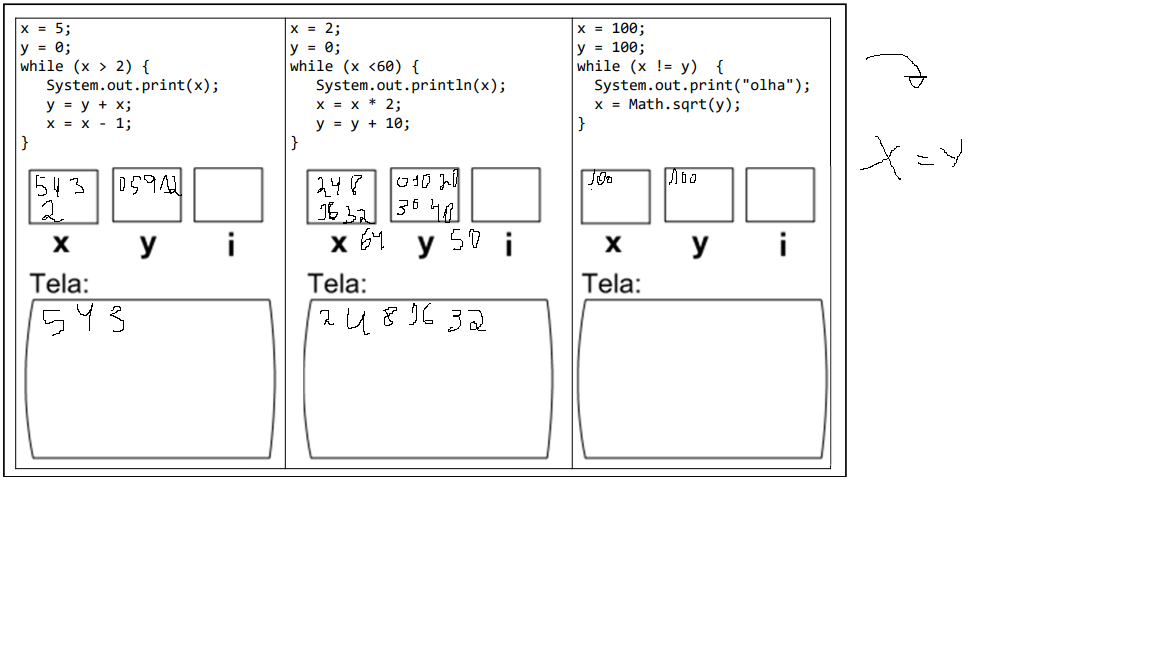 x = 5;
y = 0;
while (x > 2) {
System.out.print(x);
y = y + x;
x = x - 1;
}
5 4 3
2
0 5 9 12
x
y
i
Tela:
5 4 3
x = 2;
y = 0;
while (x <60) {
System.out.println(x);
x = x * 2;
y = y + 10;
}
2 4 8
16 32
0 10 20
30 40
x 64
y 50
i
Tela:
2 4 8 16 32
x = 100;
y = 100;
while (x != y) {
System.out.print("olha");
x = Math.sqrt(y);
}
100
100
x
y
i
Tela:
X = Y